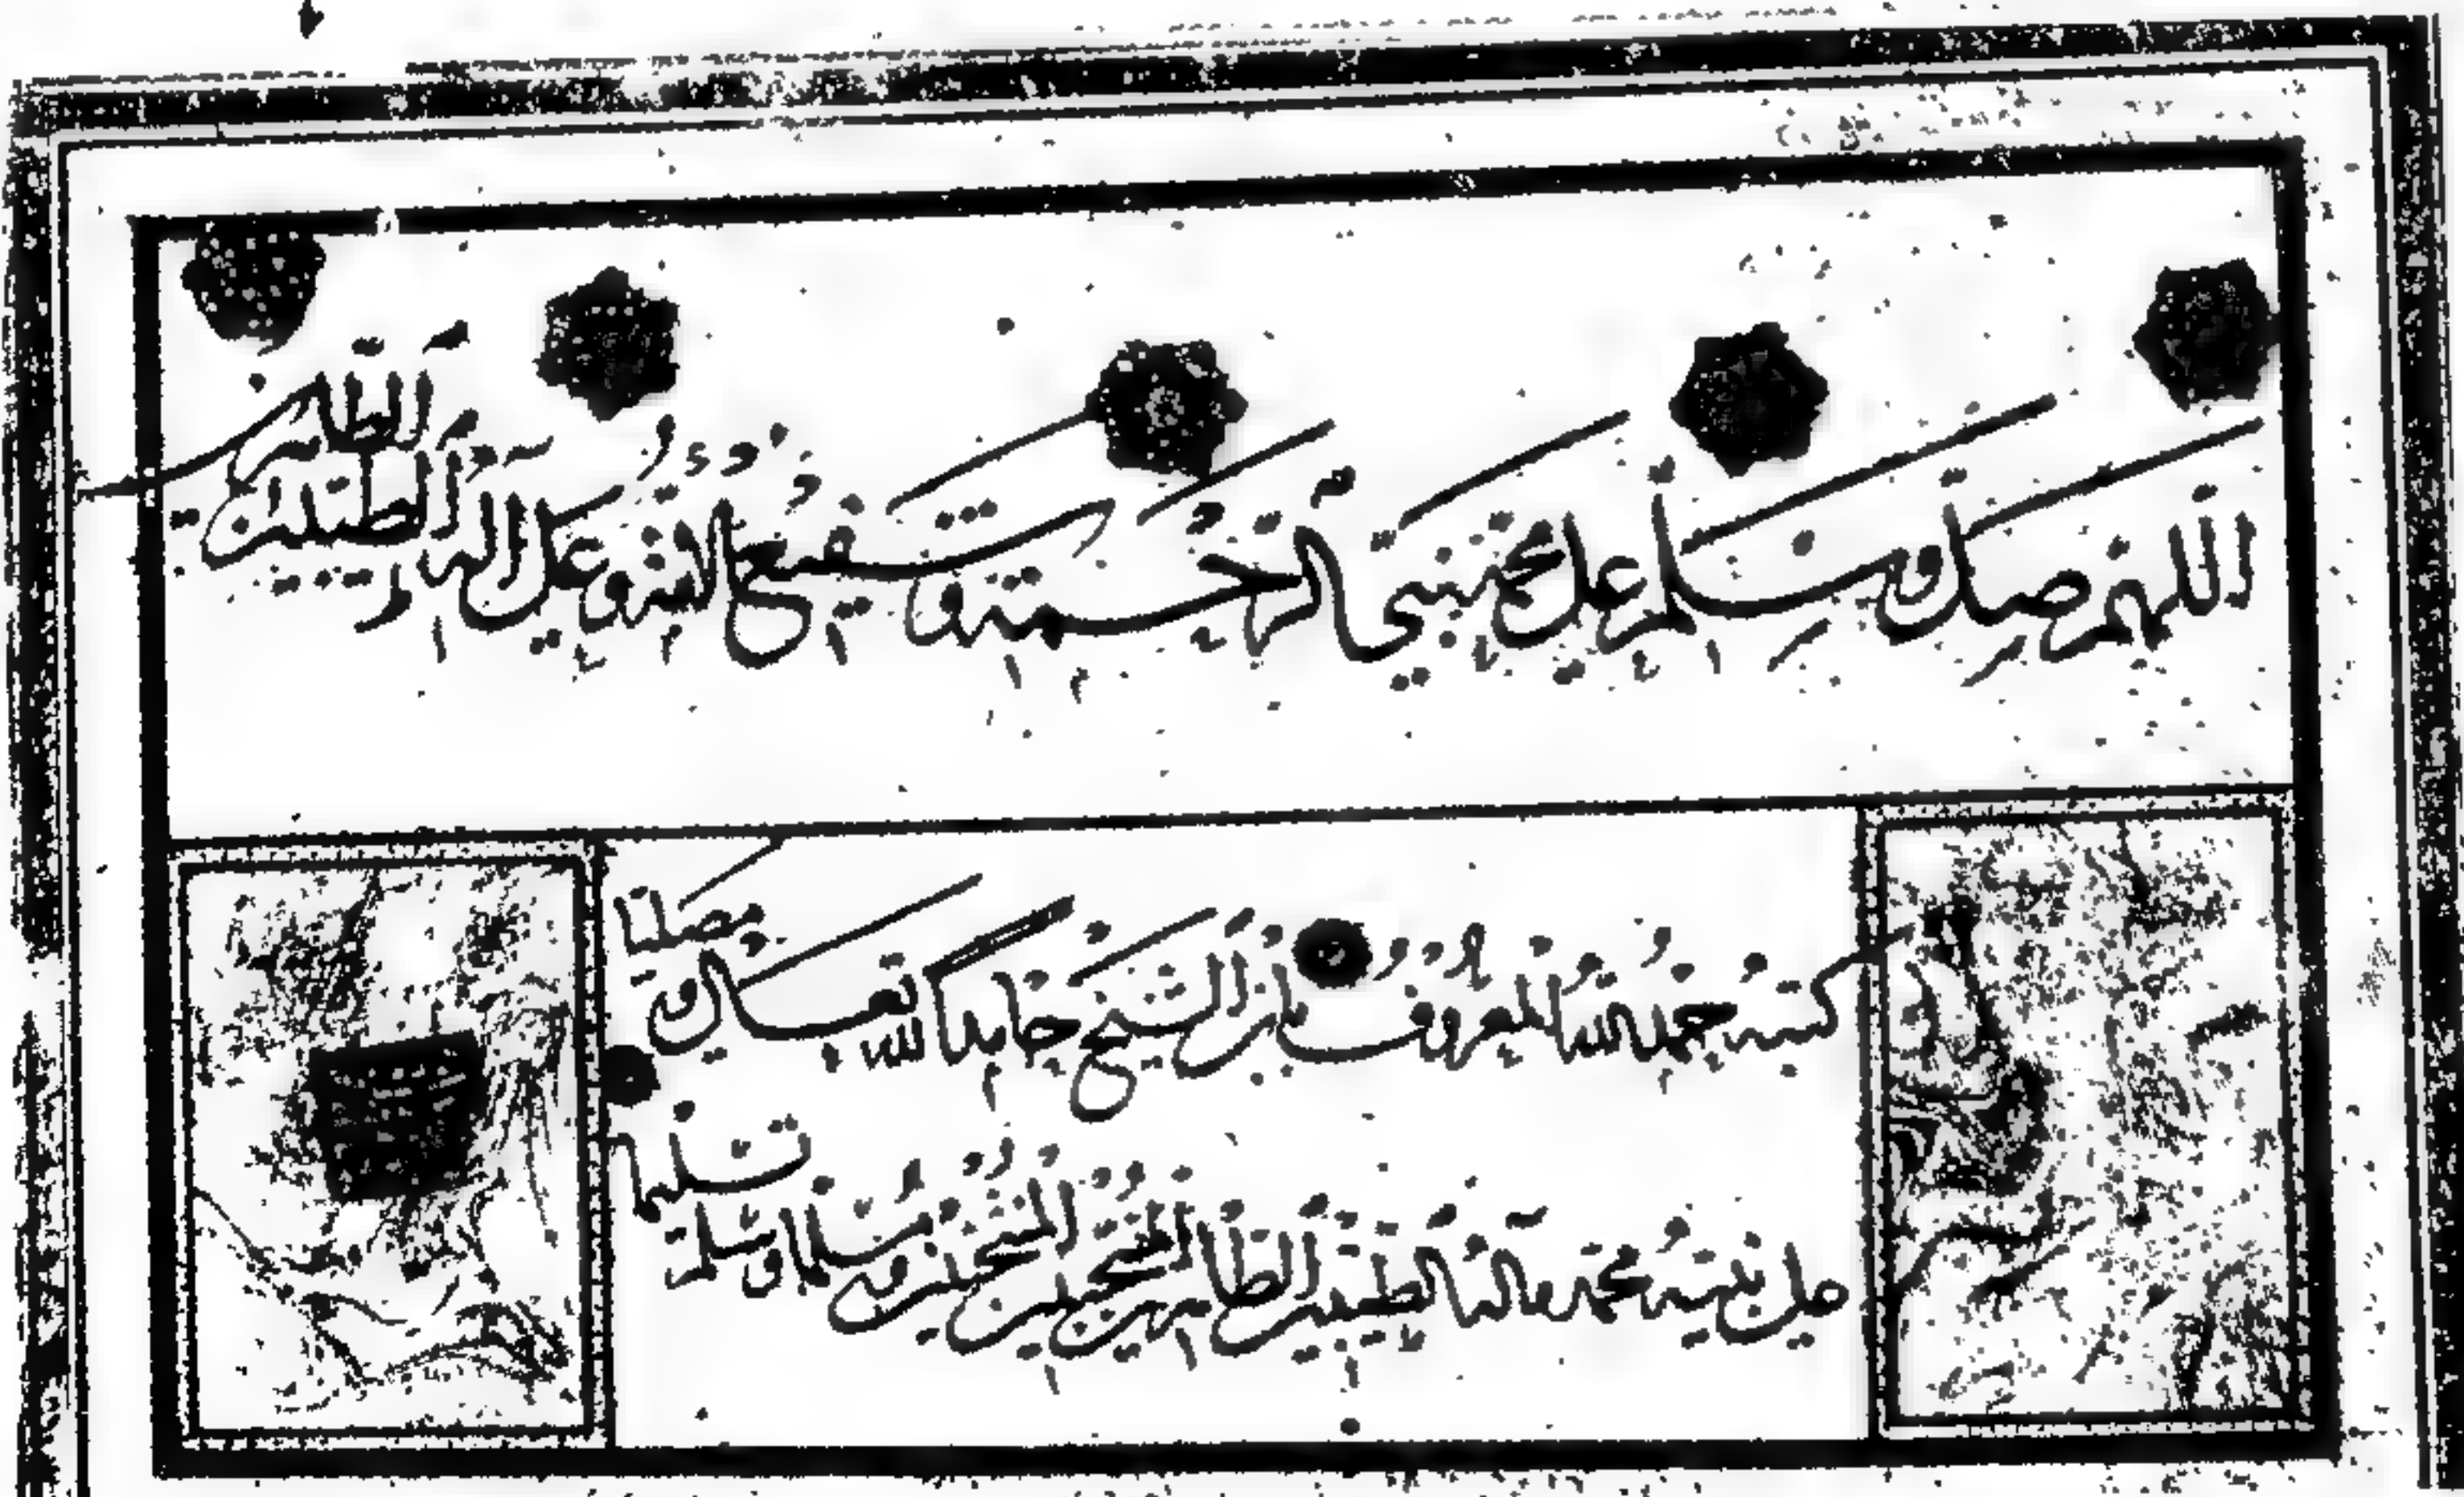 اللهم صل وسلم على محمد نبي الرحمة وشفيع الأمة وعلى آله الطيبين الطاهرين
كتبه حمد الله المعروف بابن الشيخ حامدا لله تعالى و مصليا
على نبيه محمد وآله الطيبين الطاهرين المنتجبين ومسلما وسلم تسليما